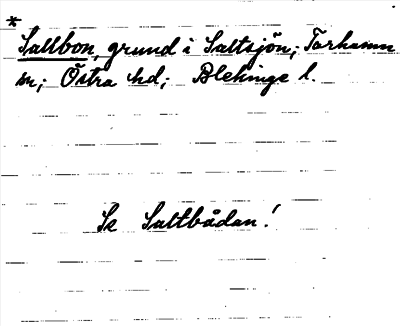 *
Saltbon, grund i Saltsjön; Torhamn
sn; Östra hd; Blekinge l.
Se Saltbådan!